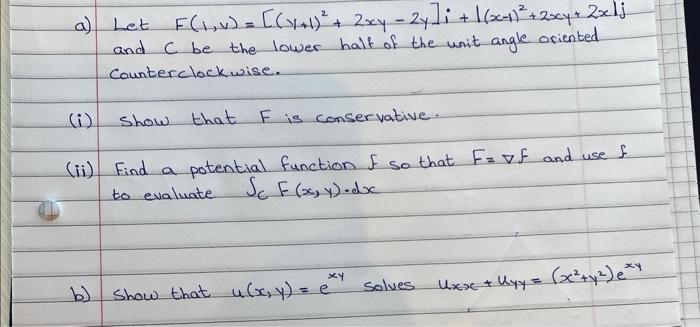 a) Let F(1,v) = [(y+1)² + 2xy - 2y]i + [(x-1)² + 2xy + 2x]j
and C be the lower half of the unit angle oriented
Counterclockwise.
(i) Show that F is conservative.
(ii) Find a potential function f so that F = ∇f and use f
to evaluate ∫c F(x,y)·dx
b) Show that u(x,y) = e^xy solves Uxx + Uyy = (x²+y²)e^xy